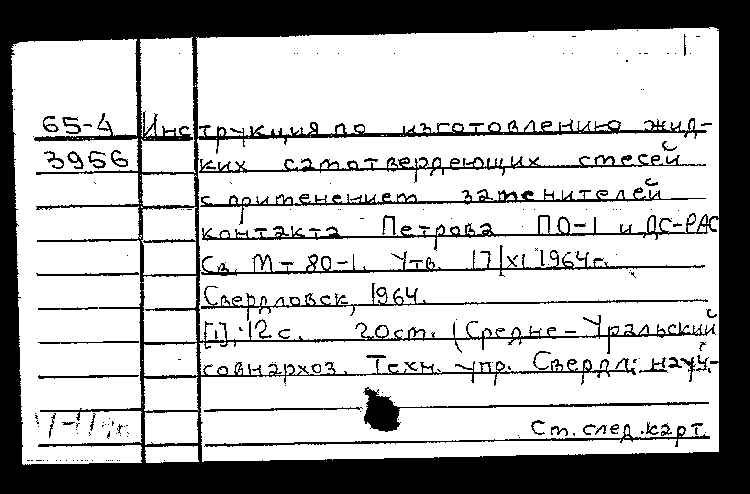 65-4 Инструкция по изготовлению жид-
3956 ких самотвердеющих смесей
с применением заменителей
контакта Петрова ПО-1 и ДС-РАС
Св. М-80-1. Утв. 17/XI 1964г.
Свердловск, 1964.
[1], 12 с. 20см. (Средне-Уральский
совнархоз. Техн. упр. Свердл. науч-
Ст. след. карт.